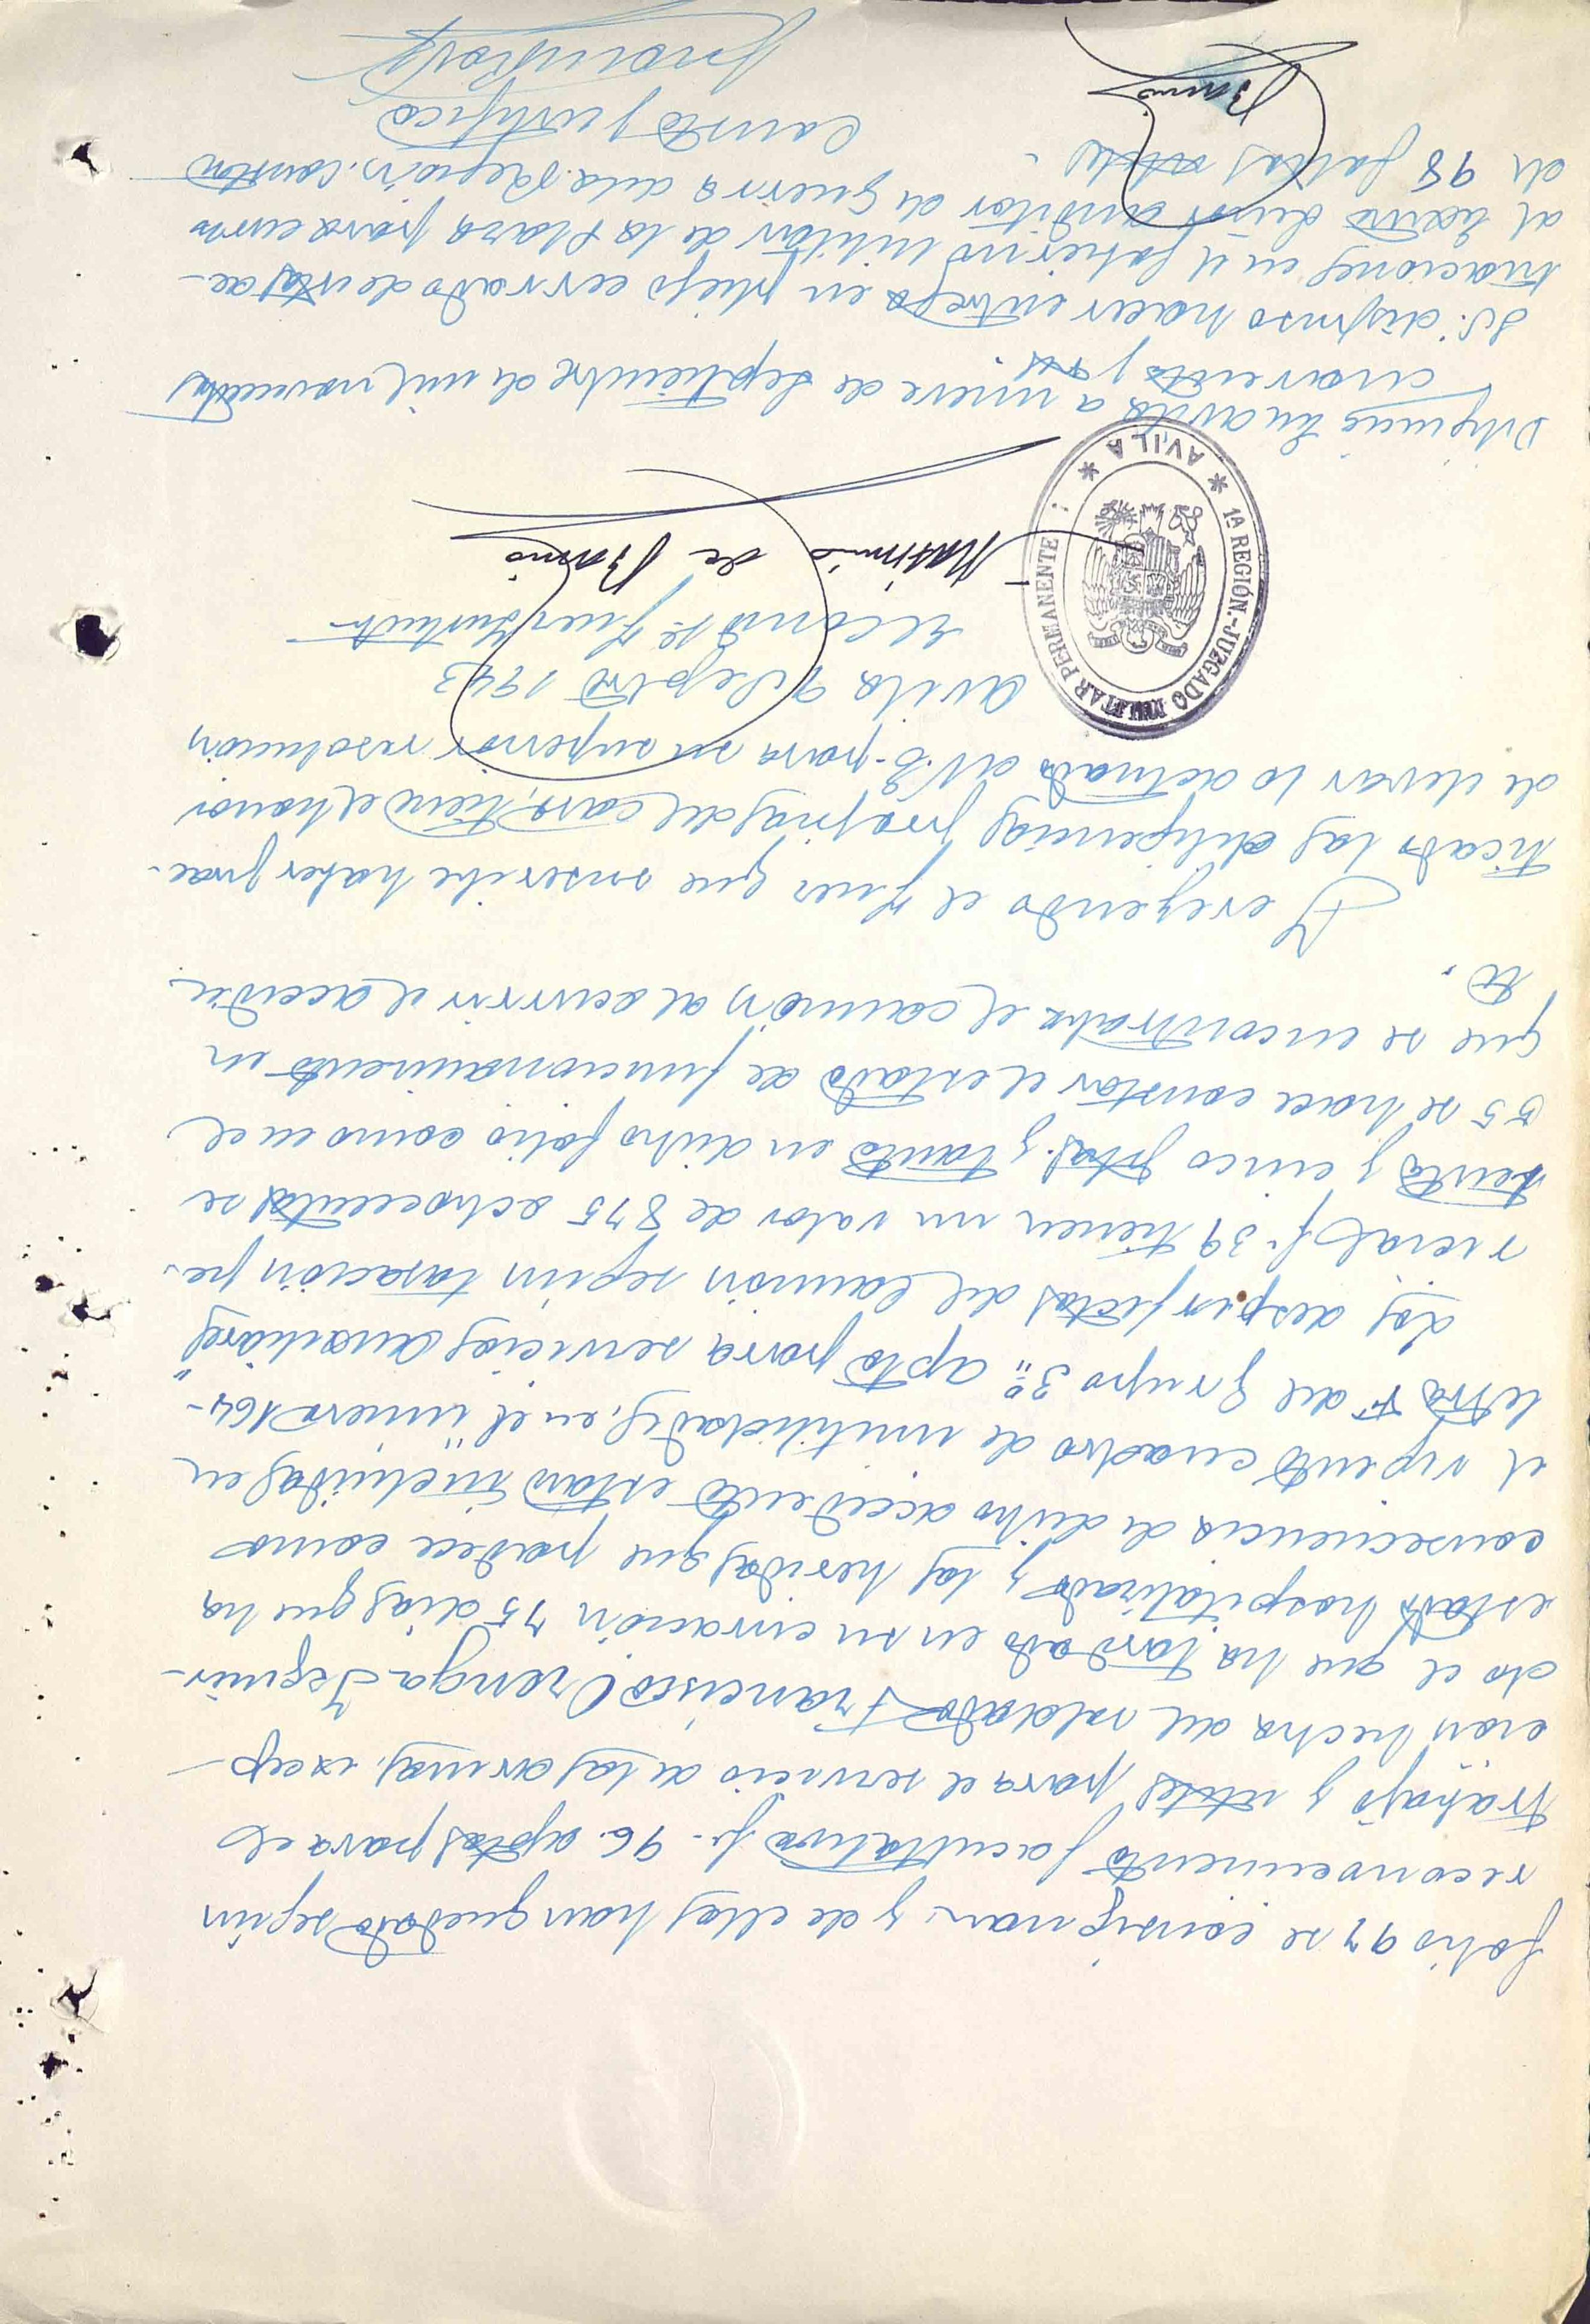 folio 97 se consignan, y de ellos han quedado según
reconocimiento facultativo f.- 96. aptos para el
trabajo y utiles para el servicio de las armas, excep-
cion hecha del soldado Francisco Orenga Segui-
do el que ha tardado en su curación 75 dias que ha
estado hospitalizado y las heridas que padece como
consecuencia de dicho accidente estan incluidas en
el vigente cuadro de inutilidades, en el "numero 164-
letra F del Grupo 3º apto para servicios auxiliares"
Los desperfectos del camión según tasación pe-
ricial f. 39 tienen un valor de 875 ochocientas se
tenta y cinco ptas. y tanto en dicho folio como en el
55 se hace constar el estado de funcionamiento en
que se encontraba el camión al ocurrir el acciden
te.
Y creyendo el Juez que suscribe haber prac-
ticado las diligencias propias del caso, tiene el honor
de elevar lo actuado a V.E. para su superior resolución
Avila 9 Sepbre 1943
El Comte Juez Instructor
Maximio de Barrio
1ª REGIÓN.-JUZGADO MILITAR PERMANENTE
* AVILA *
Diligencia En Avila a nueve de Septiembre de mil novecientos
cuarenta y tres.
S.S. dispuso hacer entrega en pliego cerrado de estas ac-
tuaciones en el Gobierno Militar de la Plaza para curso
al Iltmo Señor Auditor de Guerra de la Region. constan
de 98 folios utiles.-
Consta y certifico
Barrio